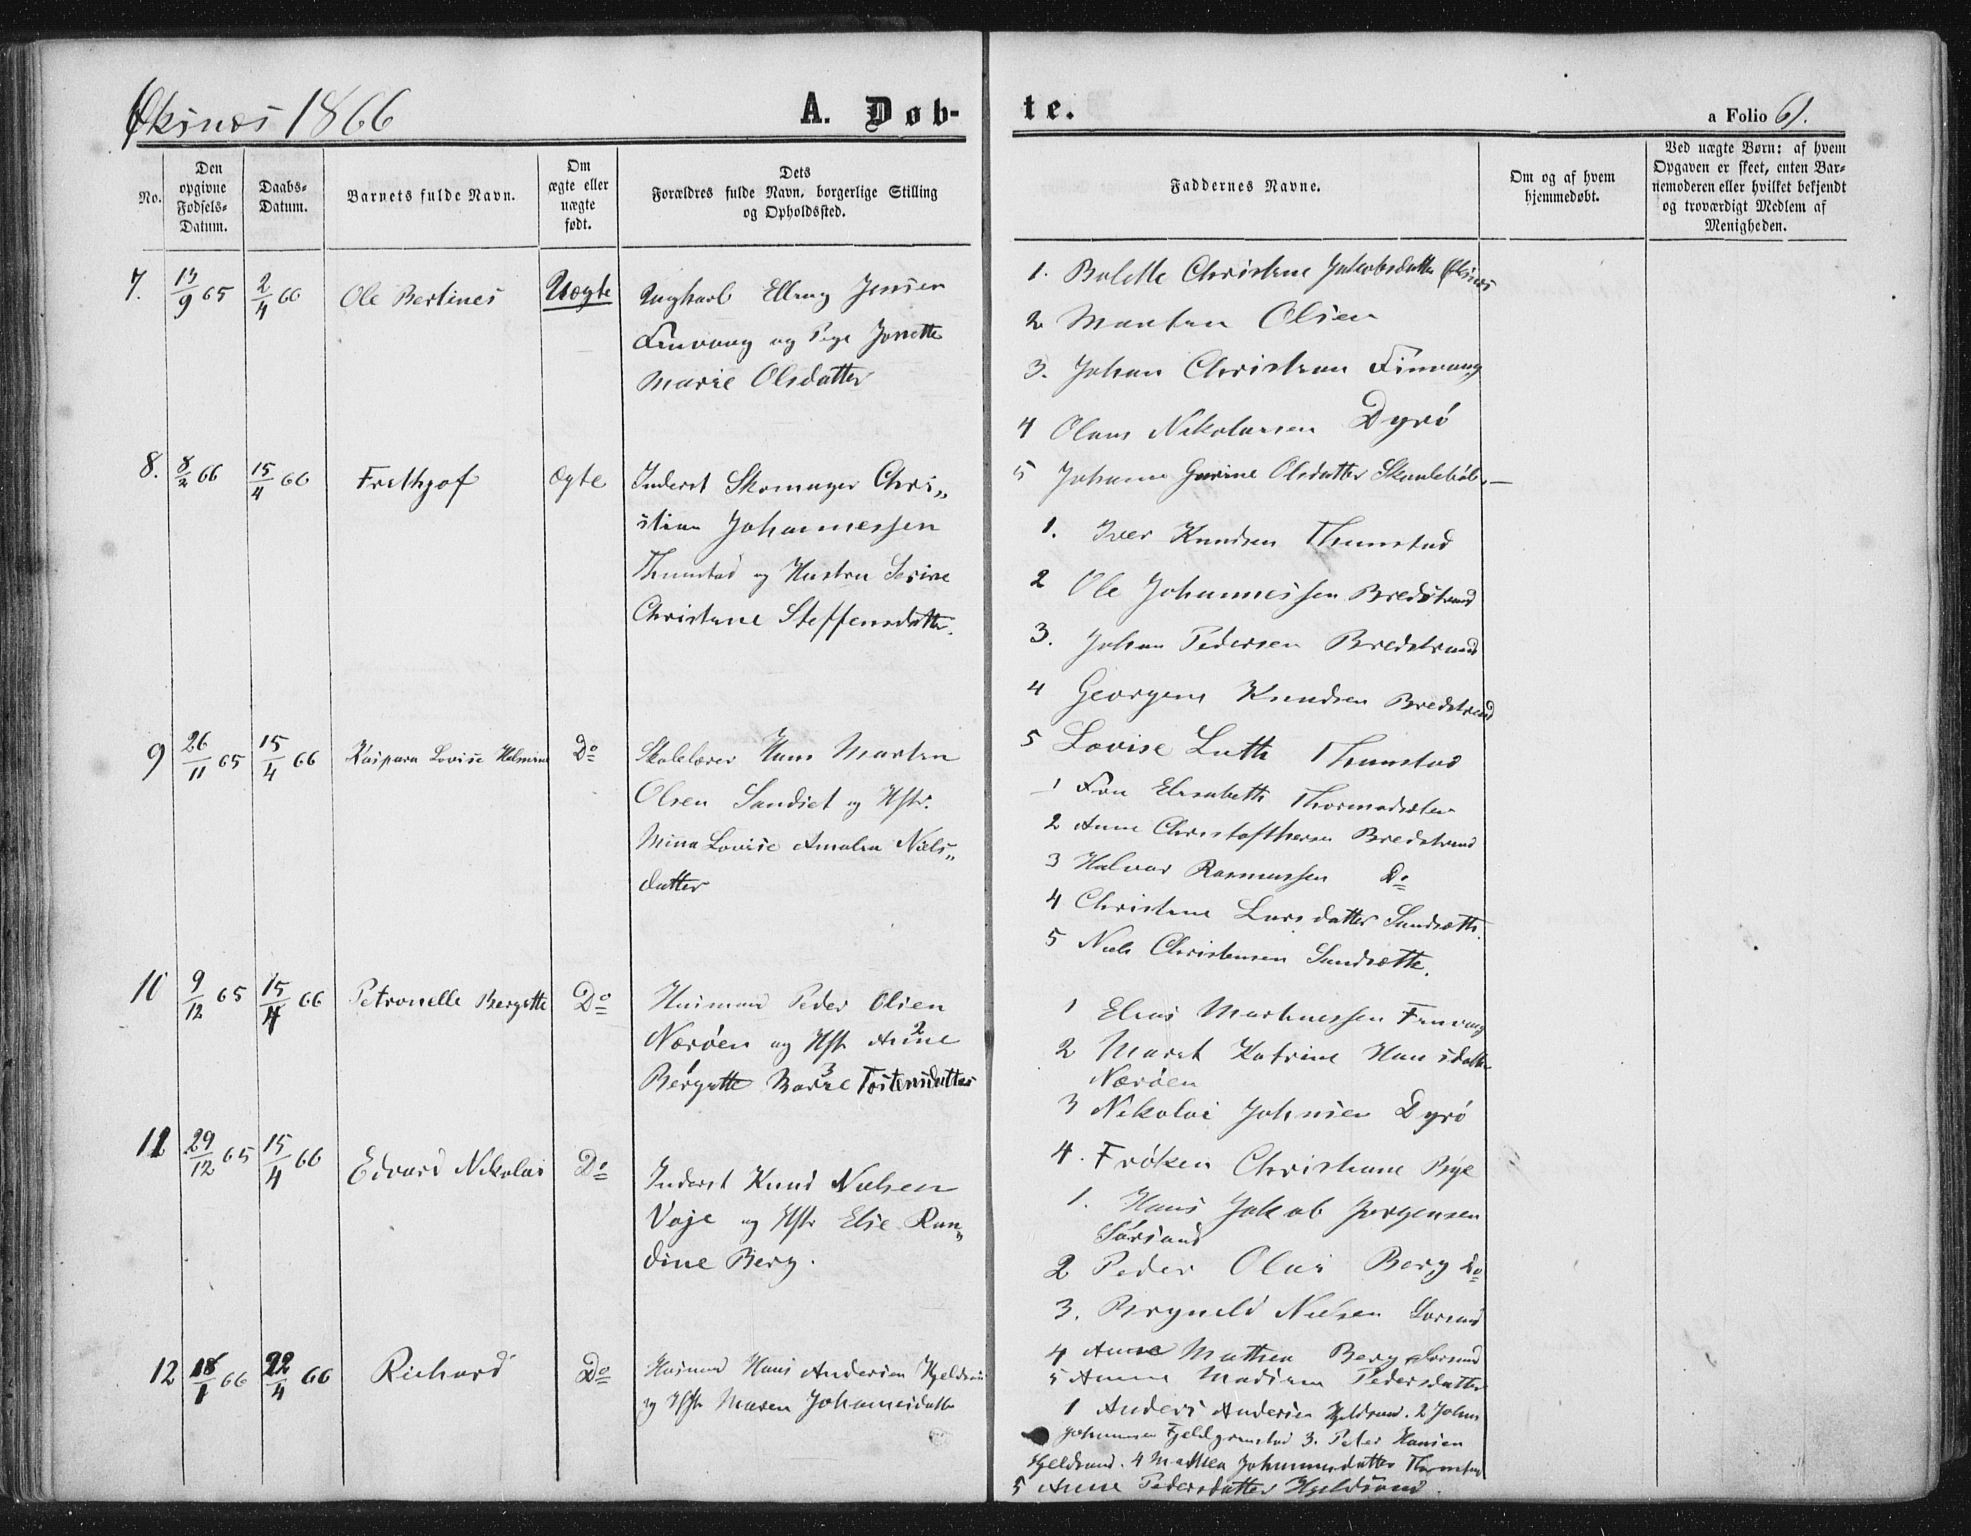 Øksnes 1866
A. Døb-
te.
a Folio 61.
No.
Den
opgivne
Fødsels-
Datum.
Daabs-
Datum.
Barnets fulde Navn.
Om
ægte eller
uægte
født.
Dets
Forældres fulde Navn, borgerlige Stilling
og Opholdssted.
Faddernes Navne.
Om og af hvem
hjemmedøbt.
Ved uægte Børn: af hvem
Opgaven er skeet, enten Bar-
nemoderen eller hvilket bekjendt
og troværdigt Medlem af
Menigheden.
7. 13/9 65 2/4 66 Ole Bertines Uægte
Ungkarl Elling Jensen
Finvaag og Pige Jonette
Marie Olsdatter
1. Bolette Christine Jakobsdatter Øksnes
2 Morten Olsen
3. Johan Christian Finvaag
4 Olaus Nikolaisen Dyrø
5 Johanne Olsdatter
8. 8/2 66 15/4 66 Frethjof ægte
Inderst Skomager Chri„
stian Johannessen
Thunstad og Hustru Serine
Christine Steffensdatter.
1. Iver Knudsen Thunstad
2 Ole Johannessen Bredstrand
3. Johan Pedersen Bredstrand
4 Georgine Knudsen Bredstrand
5 Lovise Luth Thunstad
9 26/11 65 15/4 66 Kaspara Lovise Helmine Do
Skolelærer Hans Morten
Olsen Sandset og Hstr.
Mina Lovise Amalia Niels„
datter
1 Fru Elisabeth
2 Anne Bredstrand
3 Halvor Rasmussen Do
4 Christine Larsdatter Sandsætte.
5 Niels Christensen Sandsætte.
10 9/12 65 15/4 66 Petronelle Bergette Do
Husmand Peder Olsen
Nærøen og Hstr Anne 2
Bergette Marie 3 Tostensdatter
1 Elias Martinessen Finvaag
2 Maret Katrine Hansdatter
Nærøen
3 Nikolai Johnsen Dyrø
4. Frøken Christiane Bye
11 29/12 65 15/4 66 Edvard Nikolai Do
Inderst Knud Nielsen
Vaje og Hstr Else Ran„
dine Berg.
1. Hans Jakob Jørgensen
Sørsand
2 Peder Olai Berg Do
3. Nielsen Sørsand
4 Anne Mathea Berg Sørsand
5 Anne Pedersdatter
12 18/1 66 22/4 66 Richard Do
Husmand Hans Andersen Hjeldsand
og Hstr Maren Johannesdatter
1 Anders Andersen Hjeldsand. 2 Johan
Johannesen 3. Peter Hansen
Hjeldsand. 4 Mathea Johannesdatter
5 Anne Pedersdatter Hjeldsand.